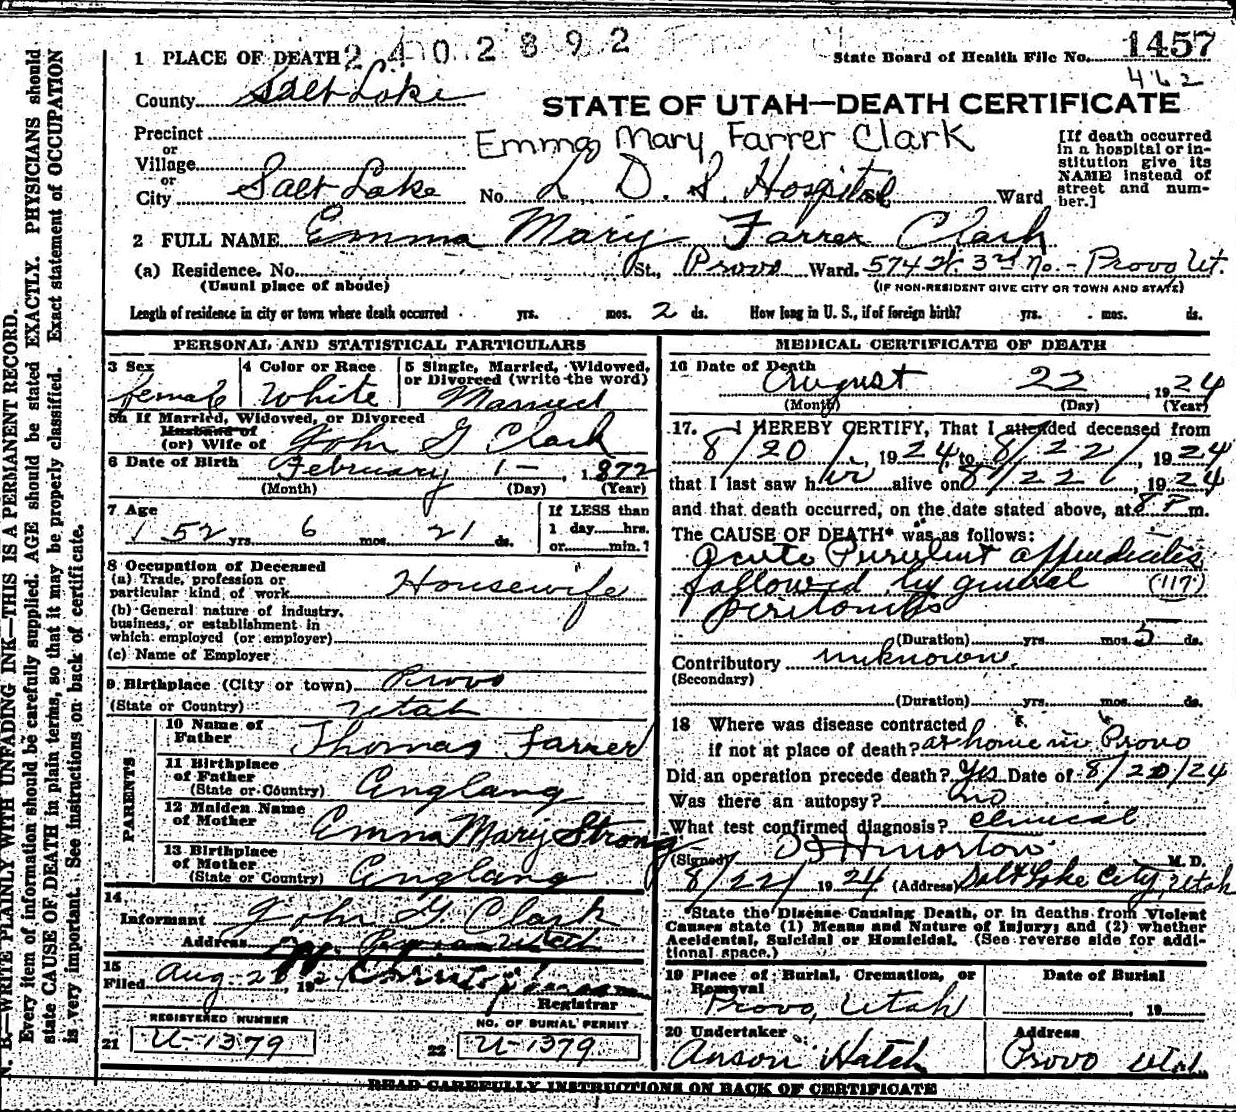 2402892
1 PLACE OF DEATH
State Board of Health File No. 1457
462
County Salt Lake
STATE OF UTAH—DEATH CERTIFICATE
Precinct
or
Village
or
City Salt Lake
Emma Mary Farrer Clark
No. L. D. S. Hospital St. Ward
[If death occurred
in a hospital or in-
stitution give its
NAME instead of
street and num-
ber.]
2 FULL NAME Emma Mary Farrer Clark
(a) Residence. No. St., Provo Ward. 574 W. 3rd No. - Provo Ut.
(Usual place of abode)
(IF NON-RESIDENT GIVE CITY OR TOWN AND STATE)
Length of residence in city or town where death occurred yrs. mos. 2 ds. How long in U. S., if of foreign birth? yrs. mos. ds.
PERSONAL AND STATISTICAL PARTICULARS
3 Sex
female
4 Color or Race
White
5 Single, Married, Widowed,
or Divorced (write the word)
Married
5a If Married, Widowed, or Divorced
Husband of
(or) Wife of John G Clark
6 Date of Birth February 1 - , 1872
(Month) (Day) (Year)
7 Age
52 yrs. 6 mos. 21 ds.
If LESS than
1 day hrs.
or min.?
8 Occupation of Deceased
(a) Trade, profession or
particular kind of work Housewife
(b) General nature of industry,
business, or establishment in
which employed (or employer)
(c) Name of Employer
9 Birthplace (City or town) Provo
(State or Country) Utah
PARENTS
10 Name of
Father Thomas Farrer
11 Birthplace
of Father
(State or Country) England
12 Maiden Name
of Mother Emma Mary Strong
13 Birthplace
of Mother
(State or Country) England
14
Informant John G Clark
Address Utah
15
Filed Aug 2 , 19
Registrar
REGISTERED NUMBER
21 U-1379
NO. OF BURIAL PERMIT
22 U-1379
MEDICAL CERTIFICATE OF DEATH
16 Date of Death
August 22 , 1924
(Month) (Day) (Year)
17. I HEREBY CERTIFY, That I attended deceased from
8/20/ , 1924, to 8/22/ , 1924
that I last saw her alive on 8/22/ , 1924
and that death occurred, on the date stated above, at 8 P m.
The CAUSE OF DEATH* was as follows:
Acute Purulent appendicitis
followed by general (117)
peritonitis
(Duration) yrs. mos. 5 ds.
Contributory unknown.
(Secondary)
(Duration) yrs. mos. ds.
18 Where was disease contracted
if not at place of death? at home in Provo
Did an operation precede death? Yes Date of 8/20/24
Was there an autopsy? no
What test confirmed diagnosis? clinical
(Signed) M. D.
8/22/ 1924 (Address) Salt Lake City, Utah
*State the Disease Causing Death, or in deaths from Violent
Causes state (1) Means and Nature of Injury; and (2) whether
Accidental, Suicidal or Homicidal. (See reverse side for addi-
tional space.)
19 Place of Burial, Cremation, or
Removal
Provo, Utah
Date of Burial
, 19
20 Undertaker
Anson Hatch
Address
Provo Utah
READ CAREFULLY INSTRUCTIONS ON BACK OF CERTIFICATE
N. B.—WRITE PLAINLY WITH UNFADING INK—THIS IS A PERMANENT RECORD.
Every item of information should be carefully supplied. AGE should be stated EXACTLY. PHYSICIANS should
state CAUSE OF DEATH in plain terms, so that it may be properly classified. Exact statement of OCCUPATION
is very important. See instructions on back of certificate.